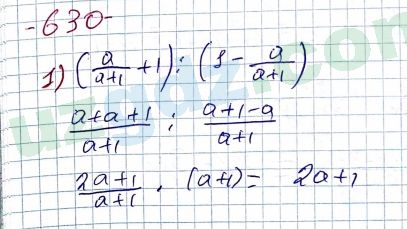 -630-
1) (a/(a+1) + 1) : (1 - a/(a+1))
(a+a+1)/(a+1) : (a+1-a)/(a+1)
(2a+1)/(a+1) · (a+1) = 2a+1